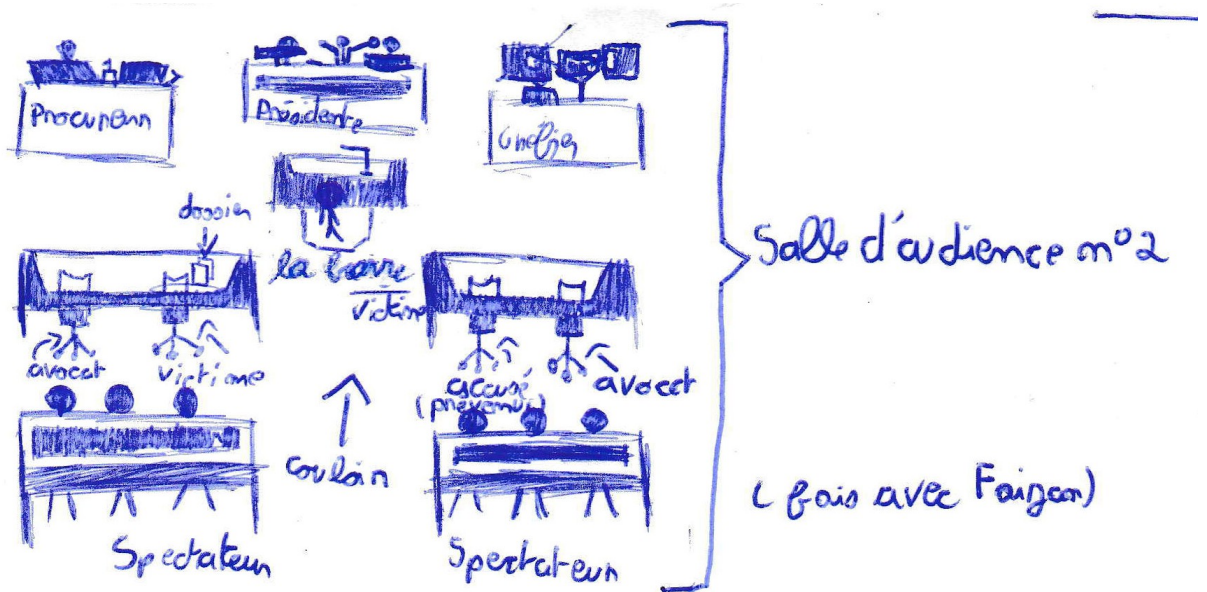 Procureur
Présidente
Greffier
dossier
la barre
victime
avocat
victime
accusé
(prévenu)
avocat
couloir
Spectateur
Spectateur
Salle d'audience n°2
(fais avec Faizan)